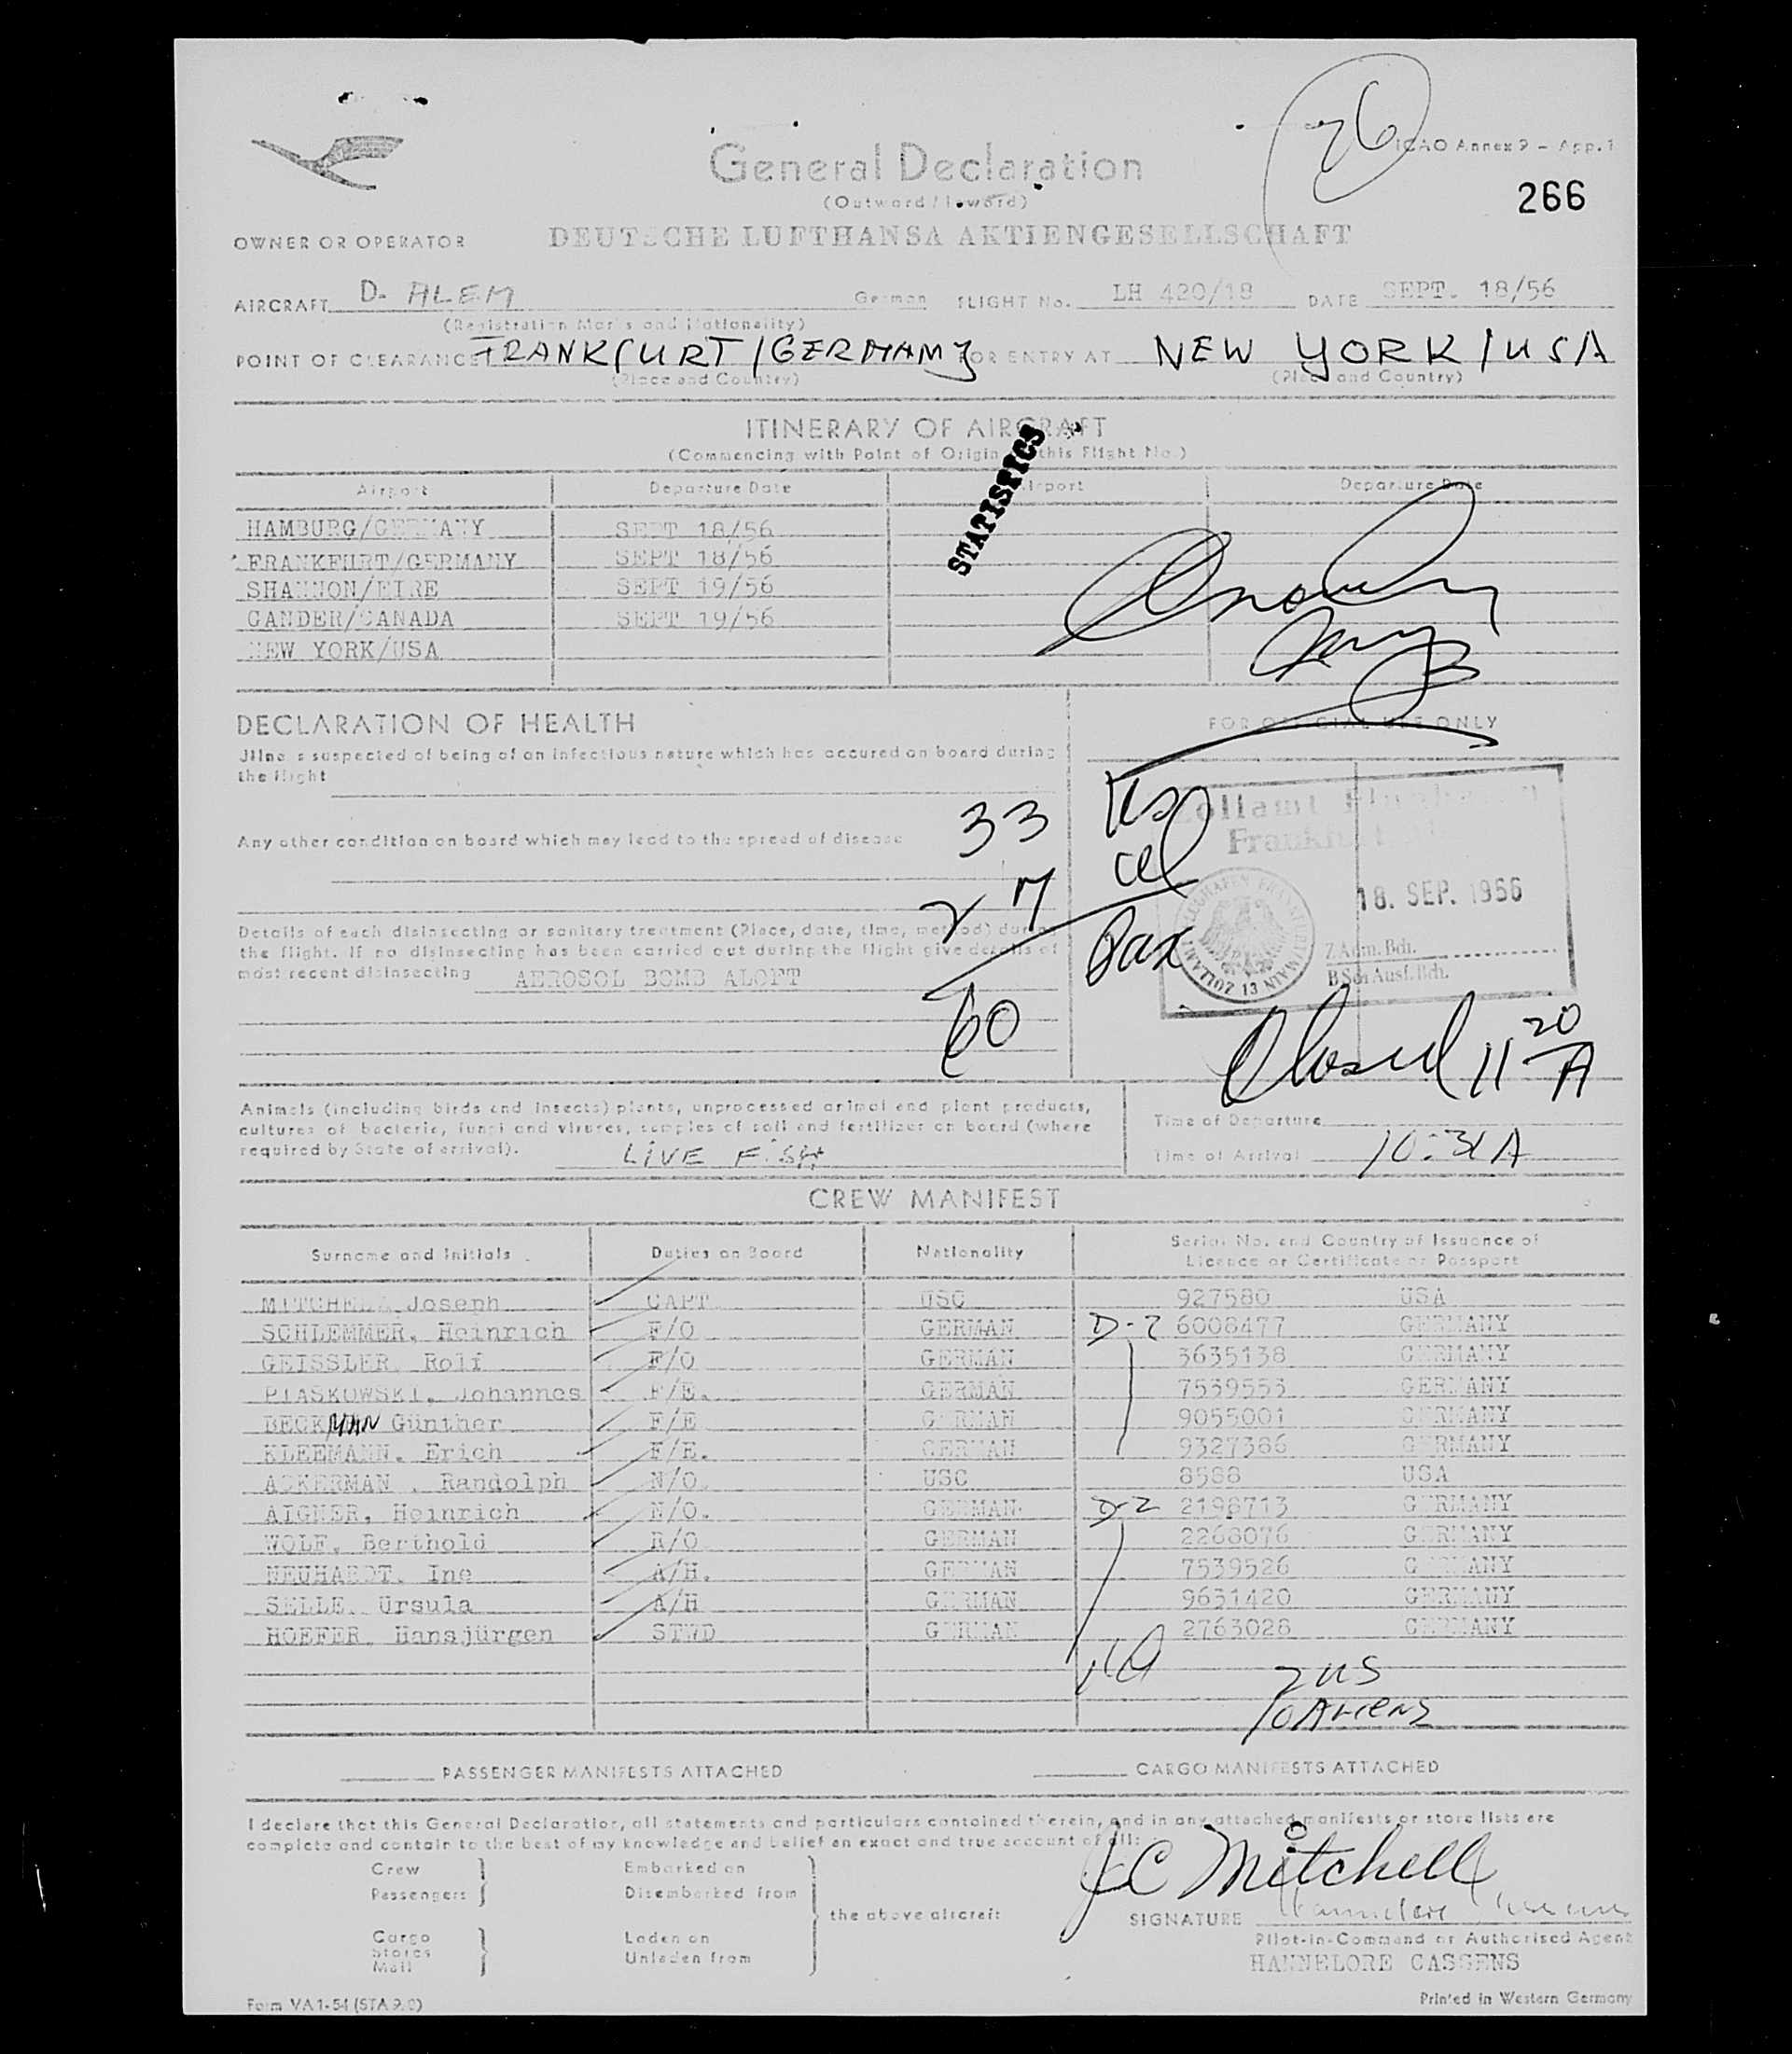 26
ICAO Annex 9 – App. 1
General Declaration
(Outward / Inward)
266
OWNER OR OPERATOR DEUTSCHE LUFTHANSA AKTIENGESELLSCHAFT
AIRCRAFT D- ALEM German FLIGHT No. LH 420/18 DATE SEPT. 18/56
(Registration Marks and Nationality)
POINT OF CLEARANCE FRANKFURT/GERMANY FOR ENTRY AT NEW YORK/USA
(Place and Country) (Place and Country)
ITINERARY OF AIRCRAFT
(Commencing with Point of Origin this Flight No.)
STATISTICS
Airport Departure Date Airport Departure Date
HAMBURG/GERMANY SEPT 18/56
FRANKFURT/GERMANY SEPT 18/56
SHANNON/EIRE SEPT 19/56
GANDER/CANADA SEPT 19/56
NEW YORK/USA
DECLARATION OF HEALTH
FOR OFFICIAL USE ONLY
Jllness suspected of being of an infectious nature which has occured on board during
the flight
33 USC
Any other condition on board which may lead to the spread of disease
27
Pax
60
Zollamt Flughafen
Frankfurt
18. SEP. 1956
Z Adm. Bch.
B Sch Ausf. Bch.
Details of each disinsecting or sanitary treatment (Place, date, time, method) during
the flight. If no disinsecting has been carried out during the flight give details of
most recent disinsecting AEROSOL BOMB ALOFT
Closed 11 20 A
Animals (including birds and insects) plants, unprocessed animal and plant products,
cultures of bacteria, fungi and viruses, samples of soil and fertilizer on board (where
required by State of arrival). LIVE FISH
Time of Departure
Time of Arrival 10:31 A
CREW MANIFEST
Surname and Initials Duties on Board Nationality Serial No. and Country of Issuance of
Licence or Certificate or Passport
MITCHELL Joseph CAPT. USC 927580 USA
SCHLEMMER, Heinrich F/O GERMAN D-2 6008477 GERMANY
GEISSLER, Rolf F/O GERMAN 3635138 GERMANY
PIASKOWSKI, Johannes F/E. GERMAN 7539553 GERMANY
BECKMAN Günther F/E GERMAN 9055001 GERMANY
KLEEMANN, Erich F/E. GERMAN 9327386 GERMANY
ACKERMAN , Randolph N/O. USC 8588 USA
AIGNER, Heinrich N/O. GERMAN D-2 2198713 GERMANY
WOLF, Berthold R/O GERMAN 2268076 GERMANY
NEUHARDT, Ine A/H. GERMAN 7539526 GERMANY
SELLE, Ursula A/H GERMAN 9631420 GERMANY
HOEFER, Hansjürgen STWD GERMAN 2763028 GERMANY
2 US
10 ALIENS
PASSENGER MANIFESTS ATTACHED CARGO MANIFESTS ATTACHED
I declare that this General Declaration, all statements and particulars contained therein, and in any attached manifests or store lists are
complete and contain to the best of my knowledge and belief an exact and true account of all:
Crew Embarked on
Passengers Disembarked from
the above aircraft
Cargo Laden on
Stores Unladen from
Mail
JC Mitchell
SIGNATURE Hannelore Cassens
Pilot-in-Command or Authorised Agent
HANNELORE CASSENS
Form VA 1-54 (STA 9.0)
Printed in Western Germany